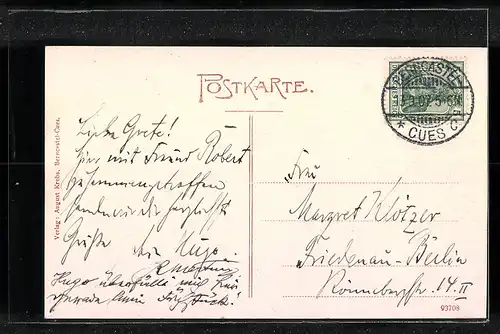 POSTKARTE.
BERNCASTEL
.9.07.5-6N
* CUES C
Verlag: August Krebs, Berncastel-Cues.
Liebe Grete!
Hier mit Freund Robert
zusammengetroffen
senden wir die herzlichsten
Grüße
Hugo
Hugo überfällt mich hier
gerade beim
Frau
Margret Klötzer
Friedenau-Berlin
Rönnebergstr. 14. II
93708